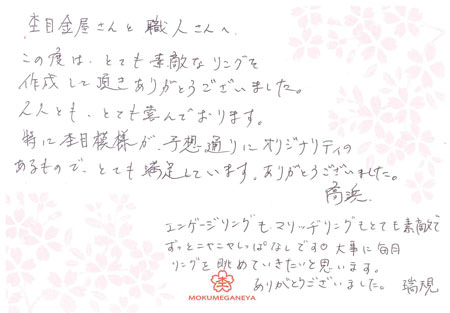 杢目金屋さんと職人さんへ
この度は、とても素敵なリングを
作成して頂きありがとうございました。
2人とも、とても喜んでおります。
特に杢目模様が、予想通りにオリジナリティの
あるもので、とても満足しています。ありがとうございました。
高浜.
エンゲージリングもマリッヂリングもとても素敵で
ずっとニヤニヤしっぱなしです♡ 大事に毎日
リングを眺めていきたいと思います。
ありがとうございました。
MOKUMEGANEYA